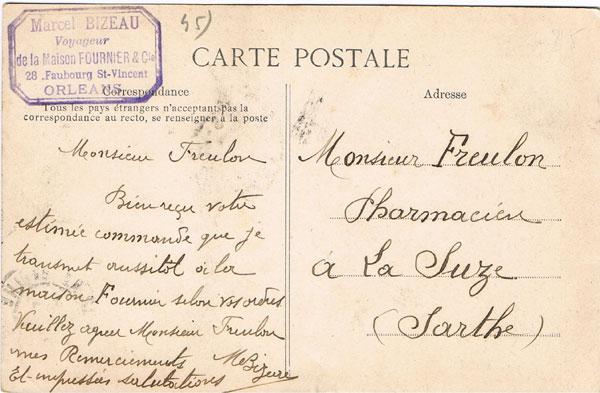 Marcel BIZEAU
Voyageur
de la Maison FOURNIER & Cie
28, Faubourg St-Vincent
ORLEANS
45)
CARTE POSTALE
Correspondance
Tous les pays étrangers n'acceptant pas la
correspondance au recto, se renseigner à la poste
Adresse
Monsieur Freulon
Bien reçu votre
estimée commande que je
transmet aussitôt à la
maison Fournier selon vos ordres
Veuillez agreer Monsieur Freulon
mes Remerciements MBizeau
Et empressées salutations
Monsieur Freulon
Pharmacien
a La Suze
(Sarthe)